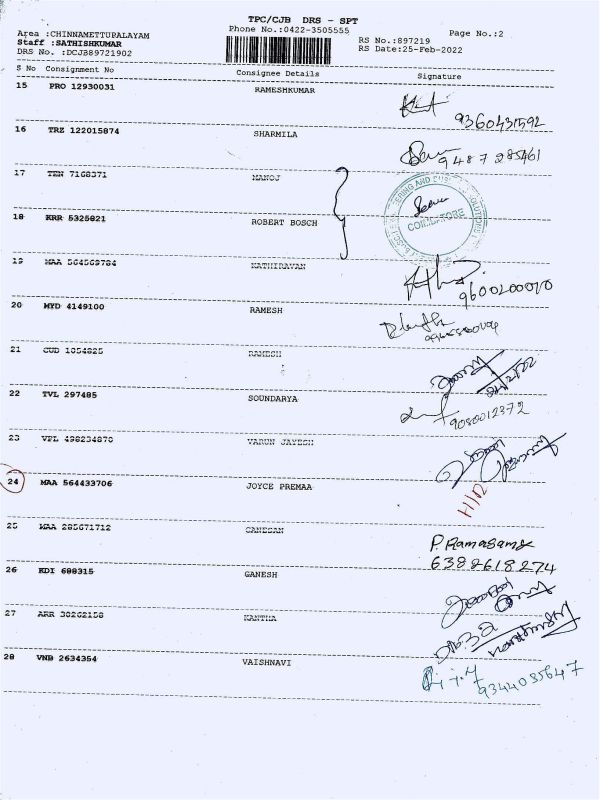 TPC/CJB DRS - SPT
Phone No.:0422-3505555
Page No.:2
Area :CHINNAMETTUPALAYAM
Staff :SATHISHKUMAR
DRS No. :DCJB89721902
RS No.:897219
RS Date:25-Feb-2022
S No Consignment No Consignee Details Signature
15 PRO 12930031 RAMESHKUMAR
9360431592
16 TRZ 122015874 SHARMILA
9487285461
17 TEN 7168371 MANOJ
18 KRR 5325821 ROBERT BOSCH
COIMBATORE
19 MAA 564569784 KATHIRAVAN
9600200070
20 MYD 4149100 RAMESH
21 CUD 1054825 RAMESH
22 TVL 297485 SOUNDARYA
9080012372
23 VPL 498234870 VARUN JAYESH
24 MAA 564433706 JOYCE PREMAA
25 MAA 285671712 GANESAN
P. Ramasamy
6382618274
26 KDI 688315 GANESH
27 ARR 30262158 KANTHA
28 VNB 2634354 VAISHNAVI
9344035647